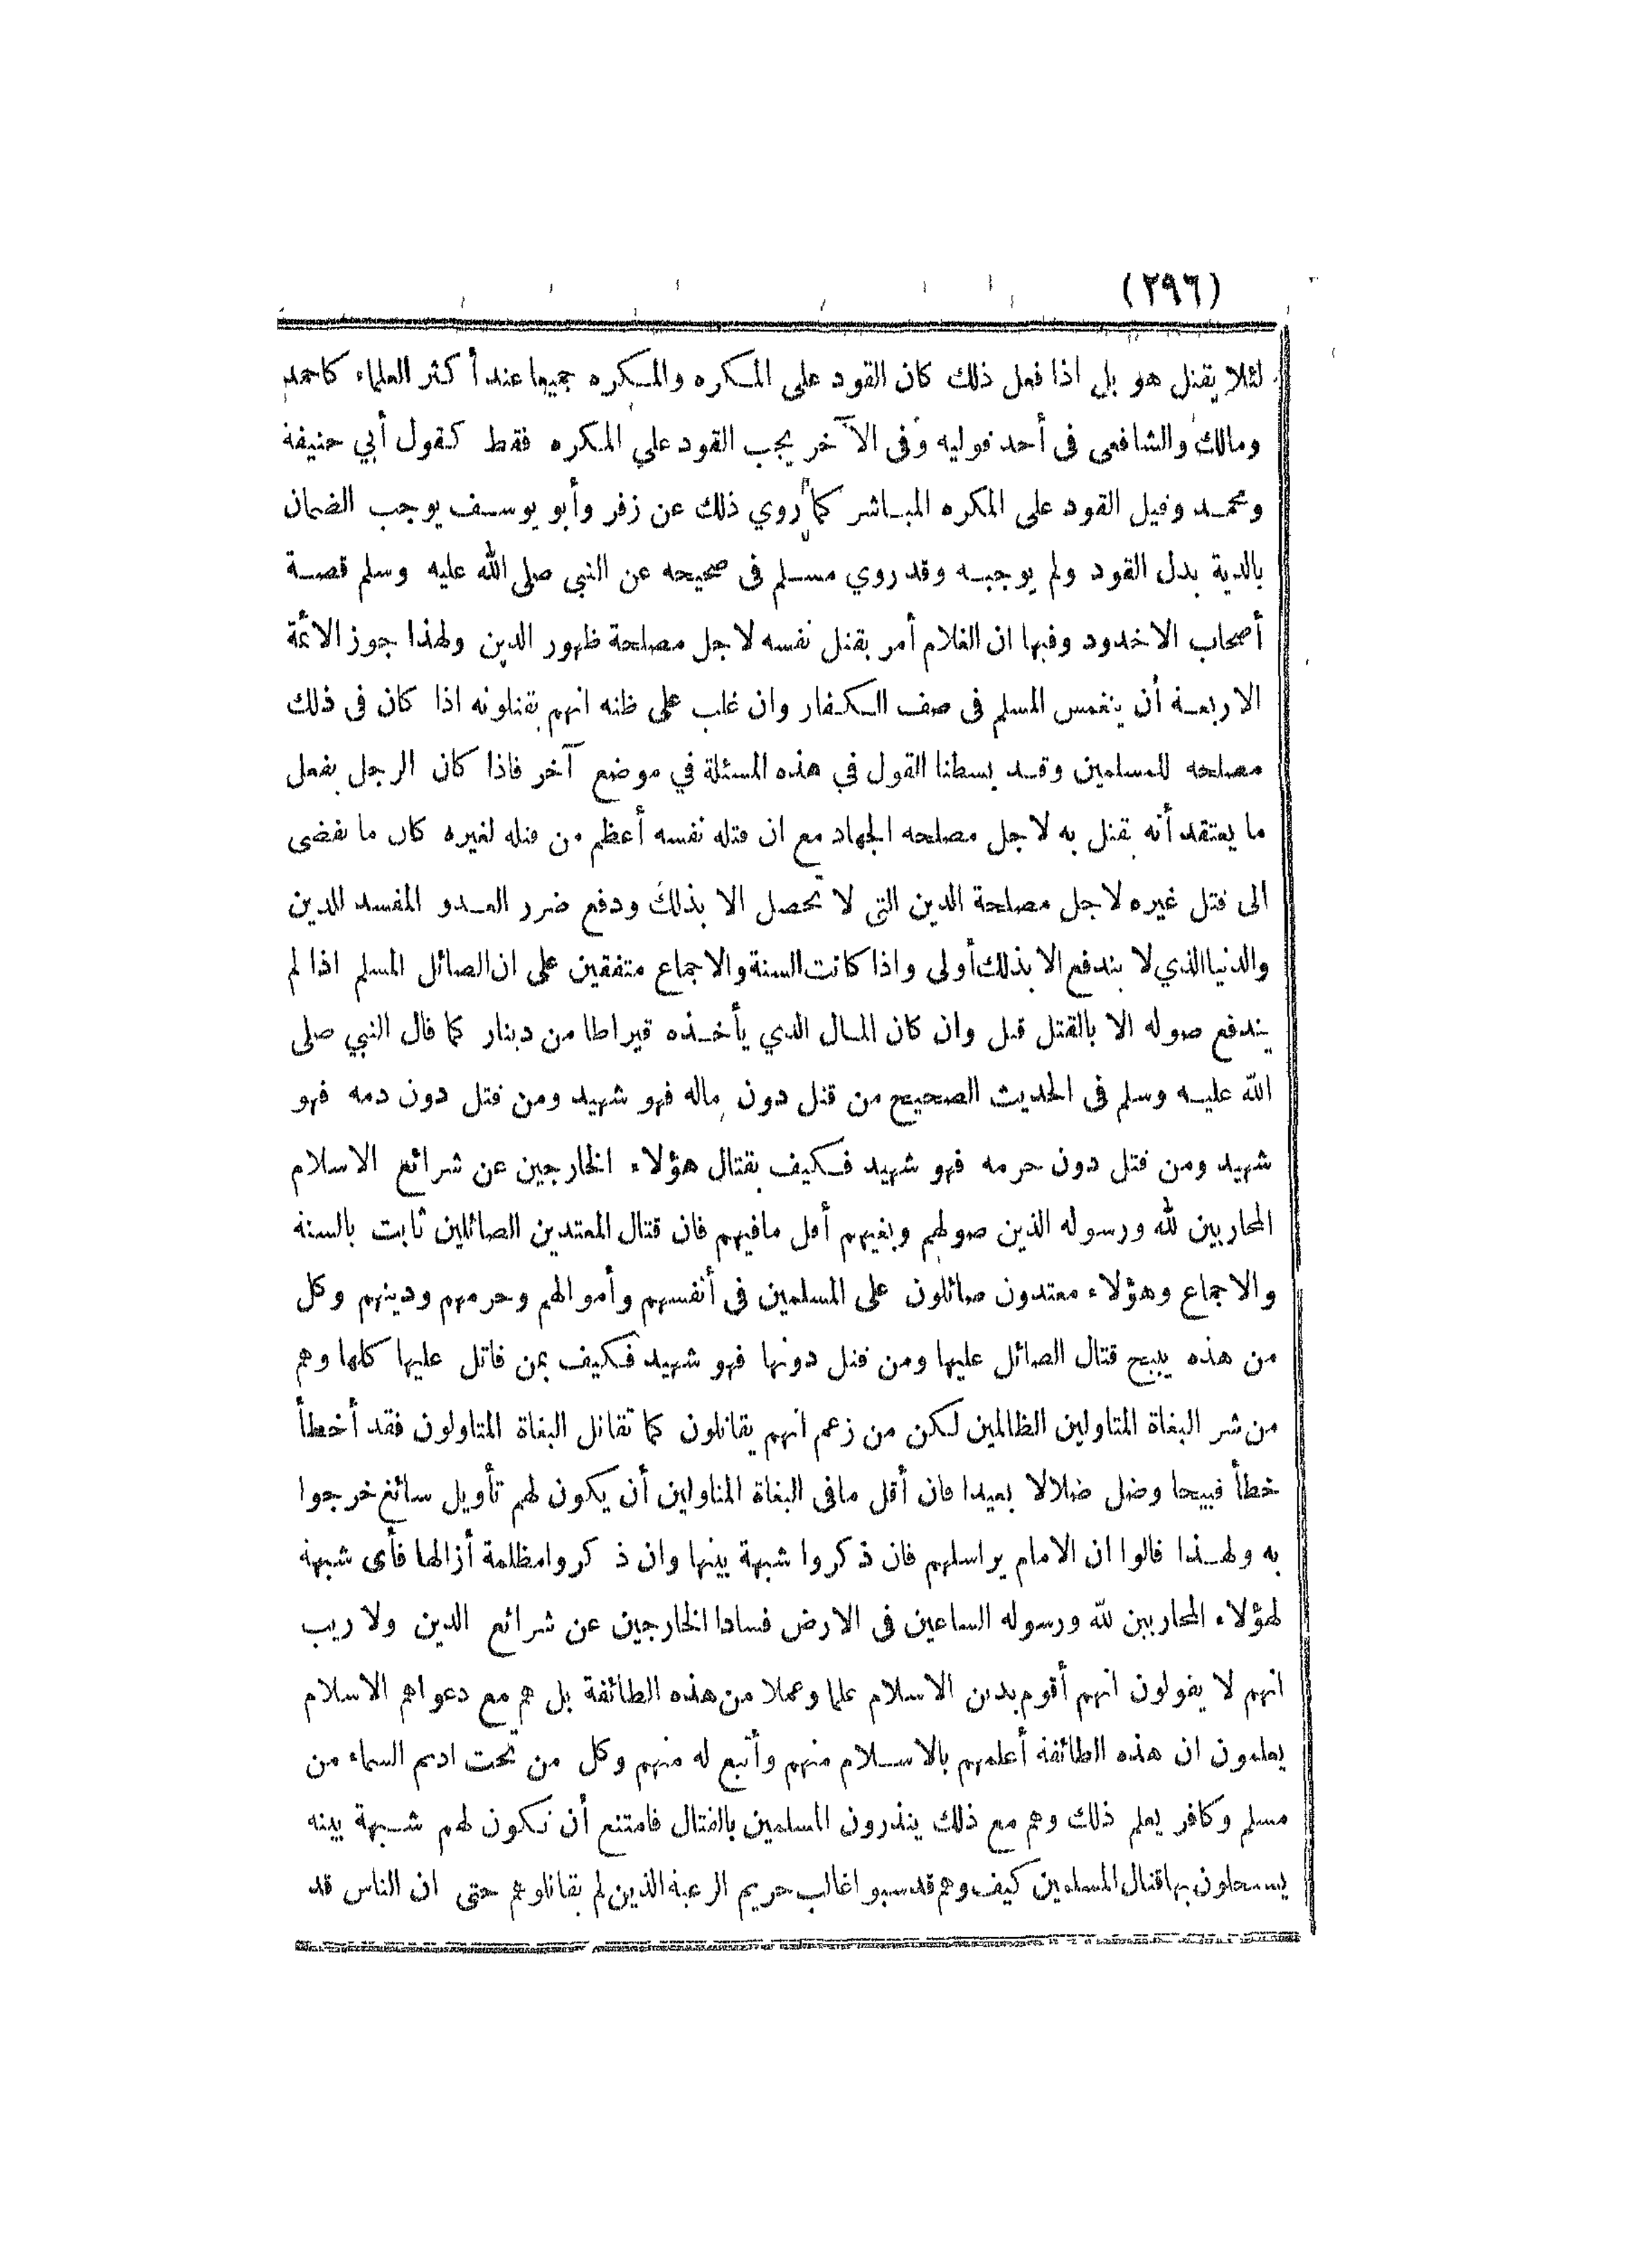 (٢٩٦)
لئلا يقتل هو بل اذا فعل ذلك كان القود على المكره والمكره جميعا عند أكثر العلماء كاحمد
ومالك والشافعى فى أحد قوليه وفى الآخر يجب القود علي المكره فقط كقول أبي حنيفة
ومحمد وقيل القود على المكره المباشر كما روي ذلك عن زفر وأبو يوسف يوجب الضمان
بالدية بدل القود ولم يوجبه وقد روي مسلم فى صحيحه عن النبى صلى الله عليه وسلم قصة
أصحاب الاخدود وفيها ان الغلام أمر بقتل نفسه لاجل مصلحة ظهور الدين ولهذا جوز الائمة
الاربعة أن ينغمس المسلم فى صف الكفار وان غلب على ظنه انهم يقتلونه اذا كان فى ذلك
مصلحه للمسلمين وقد بسطنا القول في هذه المسئلة في موضع آخر فاذا كان الرجل يفعل
ما يعتقد أنه يقتل به لاجل مصلحه الجهاد مع ان قتله نفسه أعظم من قتله لغيره كان ما يفضى
الى قتل غيره لاجل مصلحة الدين التى لا تحصل الا بذلك ودفع ضرر العدو المفسد للدين
والدنيا الذي لا يندفع الا بذلك أولى واذا كانت السنة والاجماع متفقين على ان الصائل المسلم اذا لم
يندفع صوله الا بالقتل قتل وان كان المال الذي يأخذه قيراطا من دينار كما قال النبي صلى
الله عليه وسلم فى الحديث الصحيح من قتل دون ماله فهو شهيد ومن قتل دون دمه فهو
شهيد ومن قتل دون حرمه فهو شهيد فكيف بقتال هؤلاء الخارجين عن شرائع الاسلام
المحاربين لله ورسوله الذين صولهم وبغيهم أقل مافيهم فان قتال المعتدين الصائلين ثابت بالسنة
والاجماع وهؤلاء معتدون صائلون على المسلمين فى أنفسهم وأموالهم وحرمهم ودينهم وكل
من هذه يبيح قتال الصائل عليها ومن قتل دونها فهو شهيد فكيف بمن قاتل عليها كلها وهم
من شر البغاة المتاولين الظالمين لكن من زعم انهم يقاتلون كما تقاتل البغاة المتاولون فقد أخطأ
خطأ قبيحا وضل ضلالا بعيدا فان أقل مافى البغاة المتاولين أن يكون لهم تأويل سائغ خرجوا
به ولهذا قالوا ان الامام يراسلهم فان ذكروا شبهة بينها وان ذكروا مظلمة أزالها فأى شبهة
لهؤلاء المحاربين لله ورسوله الساعين فى الارض فسادا الخارجين عن شرائع الدين ولا ريب
انهم لا يقولون انهم أقوم بدين الاسلام علما وعملا من هذه الطائفة بل هم مع دعواهم الاسلام
يعلمون ان هذه الطائفة أعلمهم بالاسلام منهم وأتبع له منهم وكل من تحت اديم السماء من
مسلم وكافر يعلم ذلك وهم مع ذلك ينذرون المسلمين بالقتال فامتنع أن تكون لهم شبهة بينه
يستحلون بها قتال المسلمين كيف وهم قد سبوا غالب حريم الرعية الذين لم يقاتلوهم حتى ان الناس قد